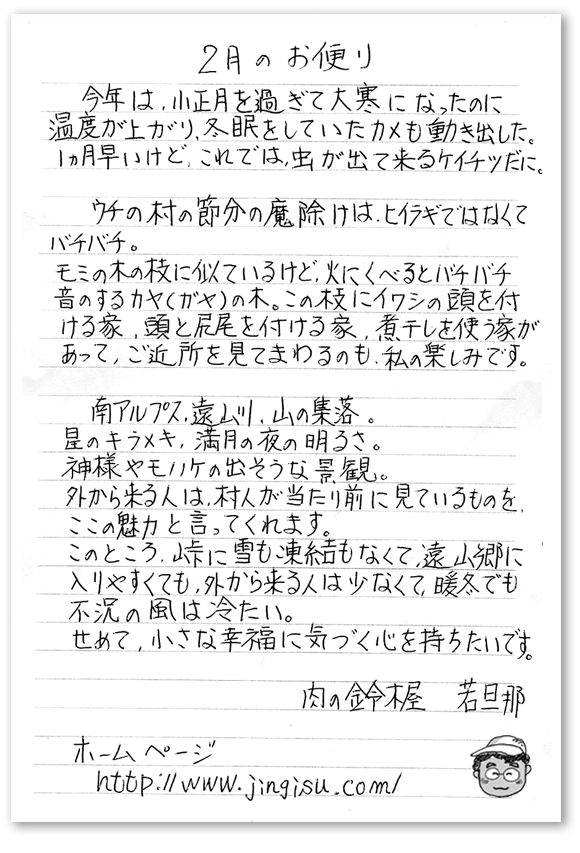 2月のお便り
今年は、小正月を過ぎて大寒になったのに
温度が上がり、冬眠をしていたカメも動き出した。
1ヵ月早いけど、これでは、虫が出て来るケイチツだに。
ウチの村の節分の魔除けは、ヒイラギではなくて
バチバチ。
モミの木の枝に似ているけど、火にくべるとバチバチ
音のするカヤ(ガヤ)の木。この枝にイワシの頭を付
ける家、頭と尻尾を付ける家、煮干しを使う家が
あって、ご近所を見てまわるのも、私の楽しみです。
南アルプス、遠山川、山の集落。
星のキラメキ、満月の夜の明るさ。
神様やモノノケの出そうな景観。
外から来る人は、村人が当たり前に見ているものを、
ここの魅力と言ってくれます。
このところ、峠に雪も凍結もなくて、遠山郷に
入りやすくても、外から来る人は少なくて、暖冬でも
不況の風は冷たい。
せめて、小さな幸福に気づく心を持ちたいです。
肉の鈴木屋 若旦那
ホームページ
http://www.jingisu.com/